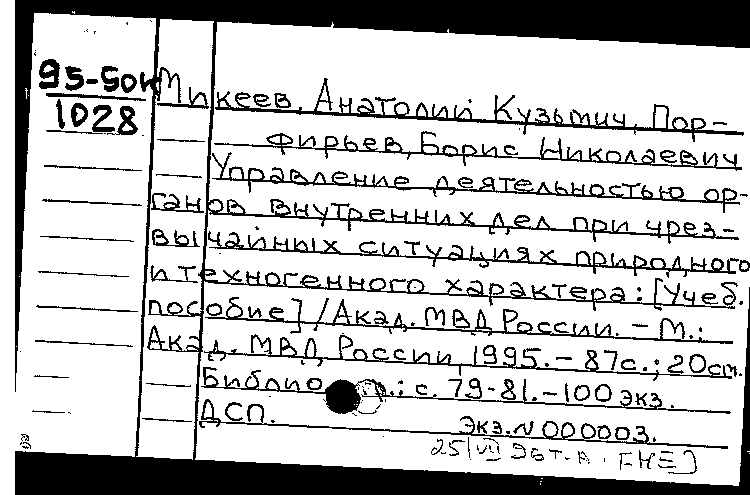 95-50к
1028
Микеев, Анатолий Кузьмич, Пор-
фирьев, Борис Николаевич
Управление деятельностью ор-
ганов внутренних дел при чрез-
вычайных ситуациях природного
и техногенного характера: [Учеб.
пособие] / Акад. МВД России. - М.:
Акад. МВД России, 1995. - 87с.; 20см.
Библио : с. 79-81. - 100 экз.
ДСП.
Экз. N 000003.
25/VII 96г.